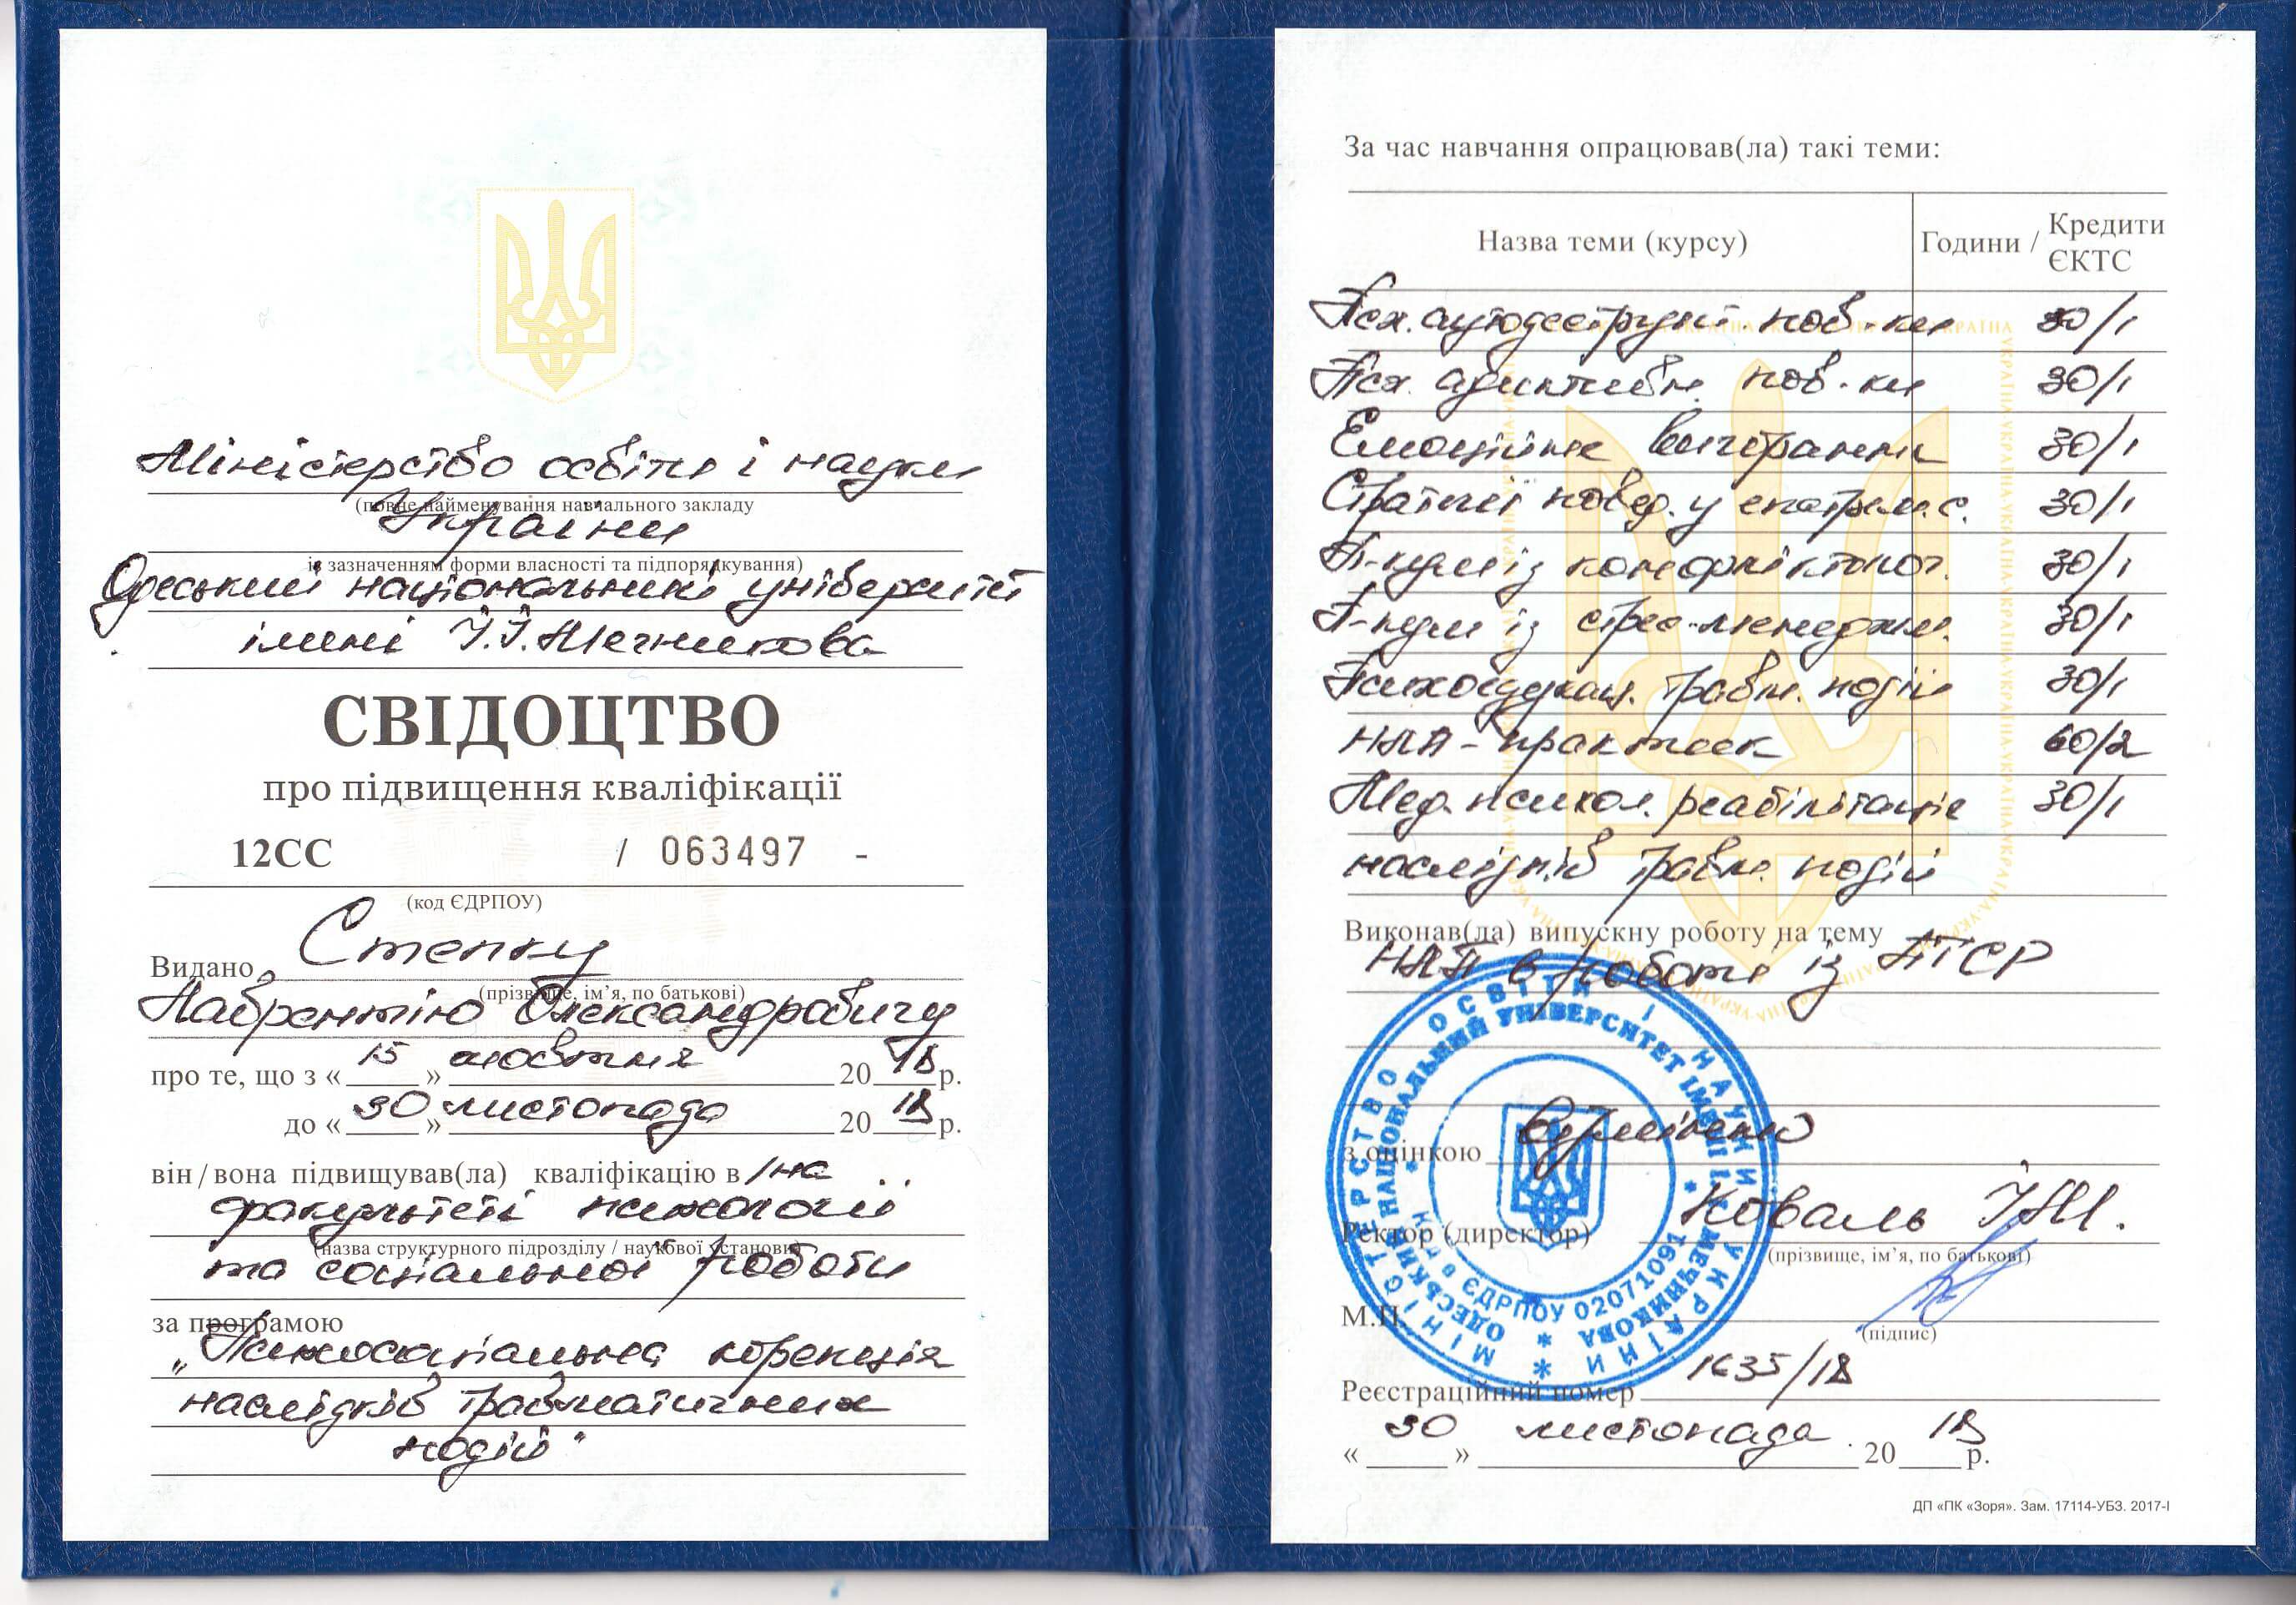 Міністерство освіти і науки
(повне найменування навчального закладу
України
із зазначенням форми власності та підпорядкування)
Одеський національний університет
імені І.І.Мечникова
СВІДОЦТВО
про підвищення кваліфікації
12СС / 063497 -
(код ЄДРПОУ)
Видано Степку
(прізвище, ім’я, по батькові)
Лаврентію Олександровичу
про те, що з « 15 » жовтня 20 18 р.
до « 30 » листопада 20 18 р.
він / вона підвищував(ла) кваліфікацію в /на
факультеті психології
(назва структурного підрозділу / наукової установи)
та соціальної роботи
за програмою
„Психосоціальна корекція
наслідків травматичних
подій"
За час навчання опрацював(ла) такі теми:
Назва теми (курсу) Години / Кредити ЄКТС
Псх. аутодеструкт. пов-ки 30/1
Псх. адиктивн. пов-ки 30/1
Емоційне вигорання 30/1
Стратегії повед. у екстрем. с. 30/1
П-кум із конфліктолог. 30/1
П-кум із стрес-менеджм. 30/1
Психоедукац. травм. подій 30/1
НЛП-практик 60/2
Мед. психол. реабілітація 30/1
наслідків травм. подій
Виконав(ла) випускну роботу на тему
НЛП в роботі із ПТСР
з оцінкою відмінно
Ректор (директор) Коваль І.М.
(прізвище, ім’я, по батькові)
М.П.
(підпис)
Реєстраційний номер 1635/18
« 30 » листопада 20 18 р.
МІНІСТЕРСТВО ОСВІТИ І НАУКИ УКРАЇНИ
ОДЕСЬКИЙ НАЦІОНАЛЬНИЙ УНІВЕРСИТЕТ ІМЕНІ І.І. МЕЧНИКОВА
Код ЄДРПОУ 02071091
ДП «ПК «Зоря». Зам. 17114-УБЗ. 2017-І